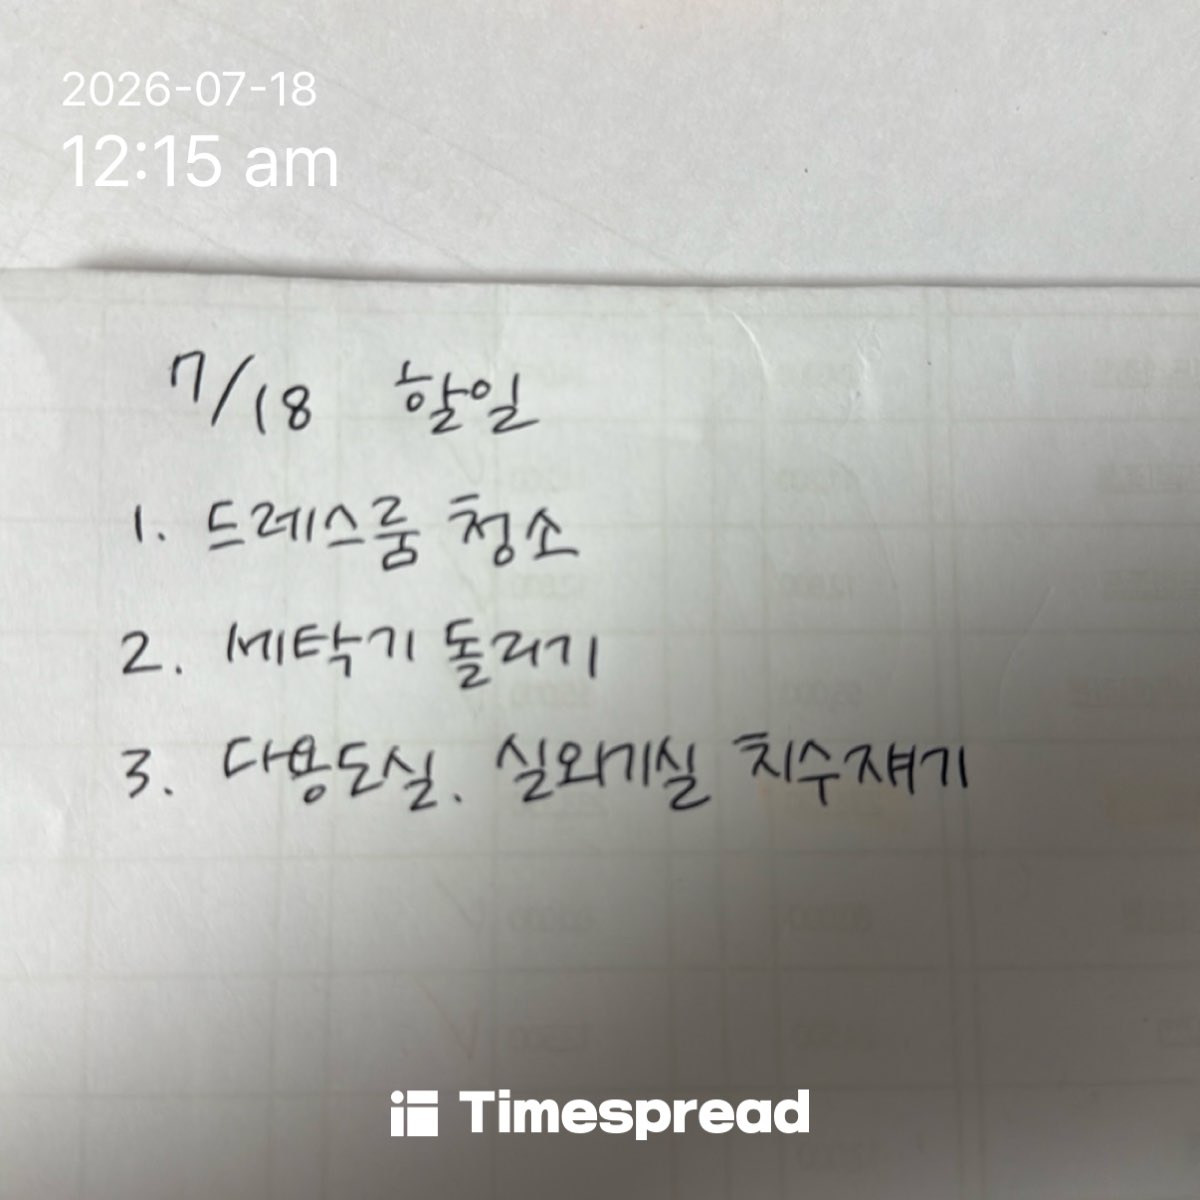 2026-07-18
12:15 am
7/18 할일
1. 드레스룸 청소
2. 세탁기 돌리기
3. 다용도실. 실외기실 치수재기
Timespread